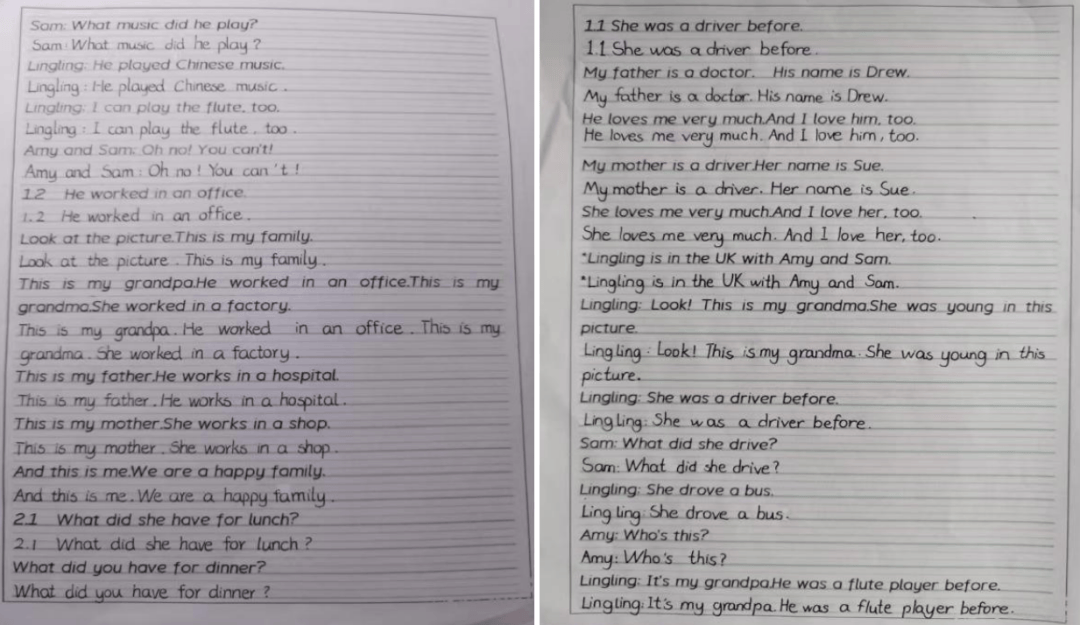 Sam: What music did he play?
Sam: What music did he play?
Lingling: He played Chinese music.
Lingling: He played Chinese music.
Lingling: I can play the flute, too.
Lingling: I can play the flute, too.
Amy and Sam: Oh no! You can't!
Amy and Sam: Oh no! You can't!
1.2 He worked in an office.
1.2 He worked in an office.
Look at the picture.This is my family.
Look at the picture. This is my family.
This is my grandpa.He worked in an office.This is my
grandma.She worked in a factory.
This is my grandpa. He worked in an office. This is my
grandma. She worked in a factory.
This is my father.He works in a hospital.
This is my father. He works in a hospital.
This is my mother.She works in a shop.
This is my mother. She works in a shop.
And this is me.We are a happy family.
And this is me. We are a happy family.
2.1 What did she have for lunch?
2.1 What did she have for lunch?
What did you have for dinner?
What did you have for dinner?
1.1 She was a driver before.
1.1 She was a driver before.
My father is a doctor. His name is Drew.
My father is a doctor. His name is Drew.
He loves me very much.And I love him, too.
He loves me very much. And I love him, too.
My mother is a driver.Her name is Sue.
My mother is a driver. Her name is Sue.
She loves me very much.And I love her, too.
She loves me very much. And I love her, too.
*Lingling is in the UK with Amy and Sam.
*Lingling is in the UK with Amy and Sam.
Lingling: Look! This is my grandma.She was young in this
picture.
Lingling: Look! This is my grandma. She was young in this
picture.
Lingling: She was a driver before.
Lingling: She was a driver before.
Sam: What did she drive?
Sam: What did she drive?
Lingling: She drove a bus.
Lingling: She drove a bus.
Amy: Who's this?
Amy: Who's this?
Lingling: It's my grandpa.He was a flute player before.
Lingling: It's my grandpa. He was a flute player before.